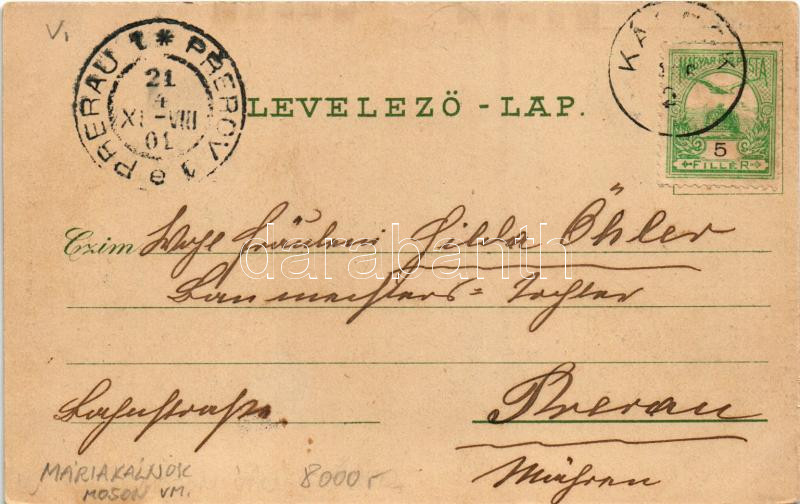 V,
PRERAU 1 * PŘEROV 1
21
4
XI-VIII
01
LEVELEZŐ - LAP.
MAGYAR POSTA
5
FILLÉR
Czim Wohl Fräulein Hilda Öhler
darabanth
Baumeisters= Tochter
Bahnstraße
Prerau
Mähren
MÁRIAKÁLNOK
MOSON VM.
8000